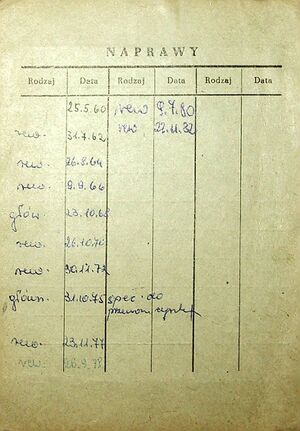 NAPRAWY
Rodzaj Data Rodzaj Data Rodzaj Data
25.5.60 rew 9.7.80
rew. 31.7.62 rew 22.11.82
rew. 26.8.64
rew. 9.9.66
głów. 23.10.68
rew. 26.10.70
rew. 30.11.72
główn. 31.10.75 spec. do
rew. 23.11.77
rew. 26.9.78